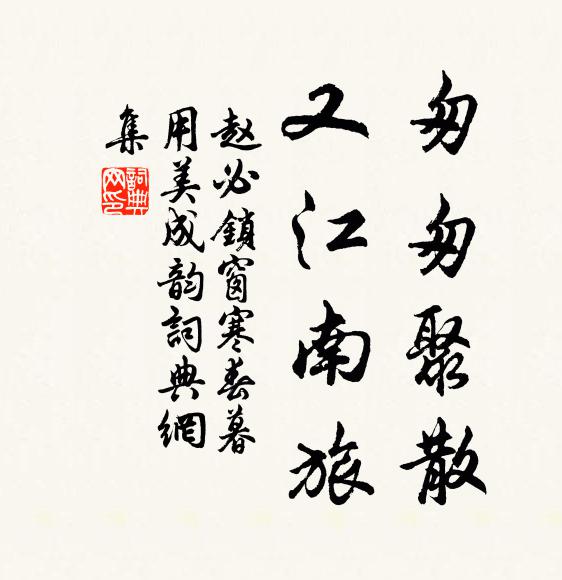 匆匆聚散
又江南旅
赵必鎖窗寒春暮
用美成韵詞典網
集
詞典
网印